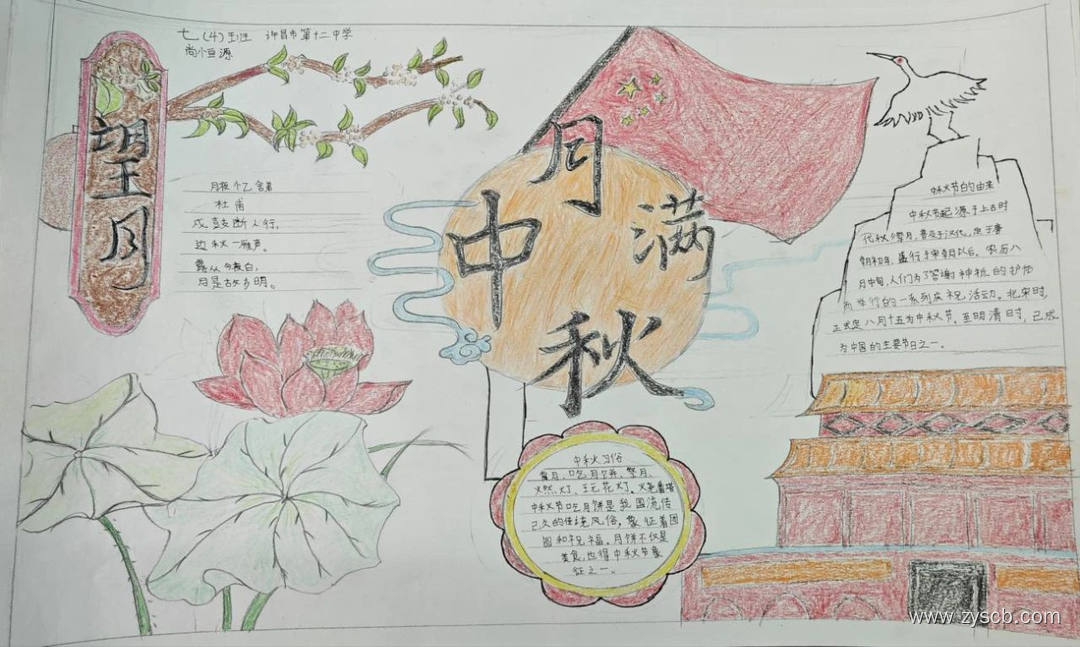 七(4)班 许昌市第十二中学
尚恒源
望月
月夜忆舍弟
杜甫
戍鼓断人行,
边秋一雁声。
露从今夜白,
月是故乡明。
月满中秋
中秋节的由来
中秋节起源于上古时
代秋夕祭月,普及于汉代,定于唐
朝初年,盛行于宋朝以后。农历八
月中旬,人们为了答谢神祇的护佑
而举行的一系列庆祝活动。北宋时,
正式定八月十五为中秋节。至明清时,已成
为中国的主要节日之一。
中秋习俗
赏月、吃月饼、祭月、
燃灯、玩花灯、火烧番塔
中秋节吃月饼是我国流传
已久的传统风俗,象征着团
圆和祝福。月饼不仅是
美食,也得中秋节象
征之一。
www.zyscb.com